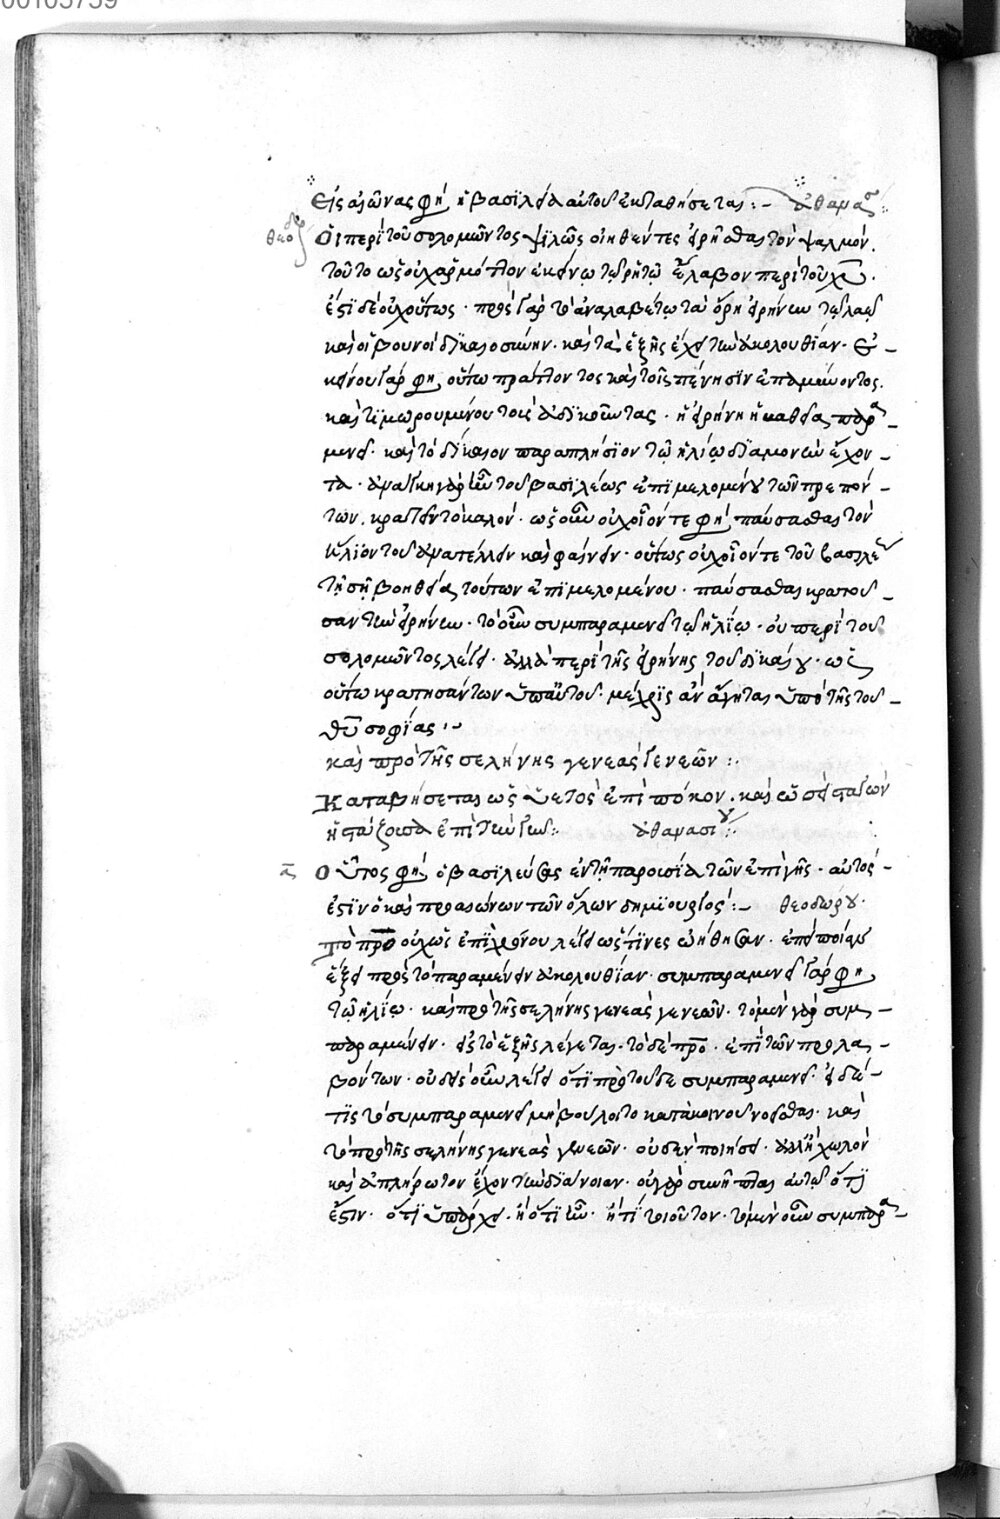 00105759
Εἰς αἰῶνας φη ἡ βασιλεία αὐτοῦ ἐκταθήσεται :- ἀθανα
θεοδ Οἱ περὶ τοῦ σολομῶντος ψιλῶς οἰηθέντες εἰρῆσθαι τὸν ψαλμόν.
τοῦτο ὡς οὐχ ἁρμόττον ἐκείνῳ τὸ ῥητὸν ἔλαβον περὶ τοῦ χυ.
ἔστι δὲ οὐχ οὕτως · πρὸς γὰρ τὸ ἀναλαβέτω τὰ ὄρη εἰρήνην τῷ λαῷ
καὶ οἱ βουνοὶ δικαιοσύνην. καὶ τὰ ἑξῆς ἔχει τὴν ἀκολουθίαν · ἐ-
κείνου γάρ φη οὕτω πράττοντος καὶ τοῖς πένησιν ἐπαμύνοντος.
καὶ τιμωρουμένου τοὺς ἀδικοῦντας · ἡ εἰρήνη παρα-
μενεῖ. καὶ τὸ δίκαιον παραπλήσιον τῷ ἡλίῳ διαμονὴν ἔχον-
τα · ἀνάγκη γὰρ ἦν τοῦ βασιλέως ἐπιμελομένου τῶν πρεπόν-
των. κρατεῖν τὸ καλόν · ὡς οὖν οὐχ οἷόν τε φη παύσασθαι τὸν
ἥλιον τοῦ ἀνατέλλειν καὶ φαίνειν · οὕτως οὐχ οἷόν τε τοῦ βασιλέως
τῇ σῇ βοηθείᾳ τούτων ἐπιμελομένου · παύσασθαι κρατοῦ-
σαν τὴν εἰρήνην · τὸ οὖν συμπαραμενεῖ τῷ ἡλίῳ · οὐ περὶ τοῦ
σολομῶντος λέγει · ἀλλὰ περὶ τῆς εἰρήνης τοῦ δικαίου · ὡς
οὕτω κρατησάντων ὑπ' αὐτοῦ μέχρις ἂν ἄγηται ὑπὸ τῆς τοῦ
θυ σοφίας :-
καὶ πρὸ τῆς σελήνης γενεὰς γενεῶν :.
Καταβήσεται ὡς ὑετὸς ἐπὶ πόκον . καὶ ὡσεὶ σταγὼν
ἡ στάζουσα ἐπὶ τὴν γῆν :. ἀθανασίου :.
Οὗτος φη ὁ βασιλεύσας ἐν τῇ παρουσίᾳ τῶν ἐπὶ γῆς · αὐτός
ἐστιν ὁ καὶ προαιώνων τῶν ὅλων δημιουργός :- θεοδώρου ·
τὸ πρὸ οὐχ ὡς ἐπὶ χρόνου λέγει ὥς τινες ᾠήθησαν · ἐπεὶ ποίαν
ἕξει πρὸς τὸ παραμένειν ἀκολουθίαν · συμπαραμενεῖ γάρ φη
τῷ ἡλίῳ · καὶ πρὸ τῆς σελήνης γενεὰς γενεῶν · τὸ μὲν γὰρ συμ-
παραμένειν · εἰς τὸ ἑξῆς λέγεται · τὸ δὲ πρὸ · ἐπὶ τῶν προλα-
βόντων · οὐδεὶς οὖν λέγει ὅτι πρὸ τοῦδε συμπαραμενεῖ · εἰ δέ
τις τὸ συμπαραμενεῖ μὴ βούλοιτο κατὰ κοινοῦ νοεῖσθαι · καὶ
τὸ πρὸ τῆς σελήνης γενεὰς γενεῶν · οὐδὲν ποιήσει · ἀλλ' ἢ χωλὸν
καὶ ἀπλήρωτον ἔχον τὴν διάνοιαν · οὐ γὰρ συνῆπται αὐτῷ ὅτι
ἔστιν · ὅτι ὑπάρχει · ἢ ὅτι ἦν · ἤ τι τοιοῦτον · τὸ μὲν οὖν συμπαρα-